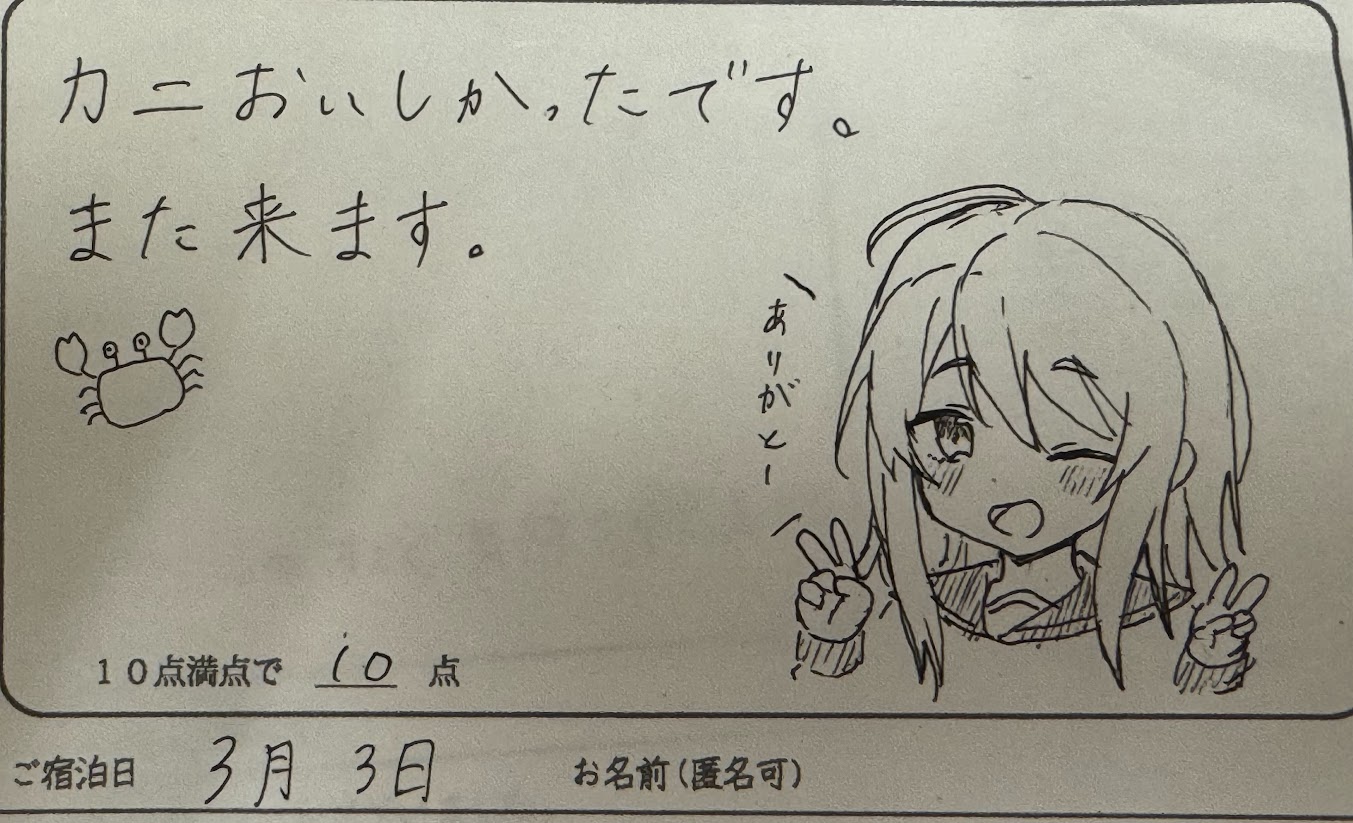 カニおいしかったです。
また来ます。
ありがとー
10点満点で 10 点
ご宿泊日 3月 3日 お名前(匿名可)